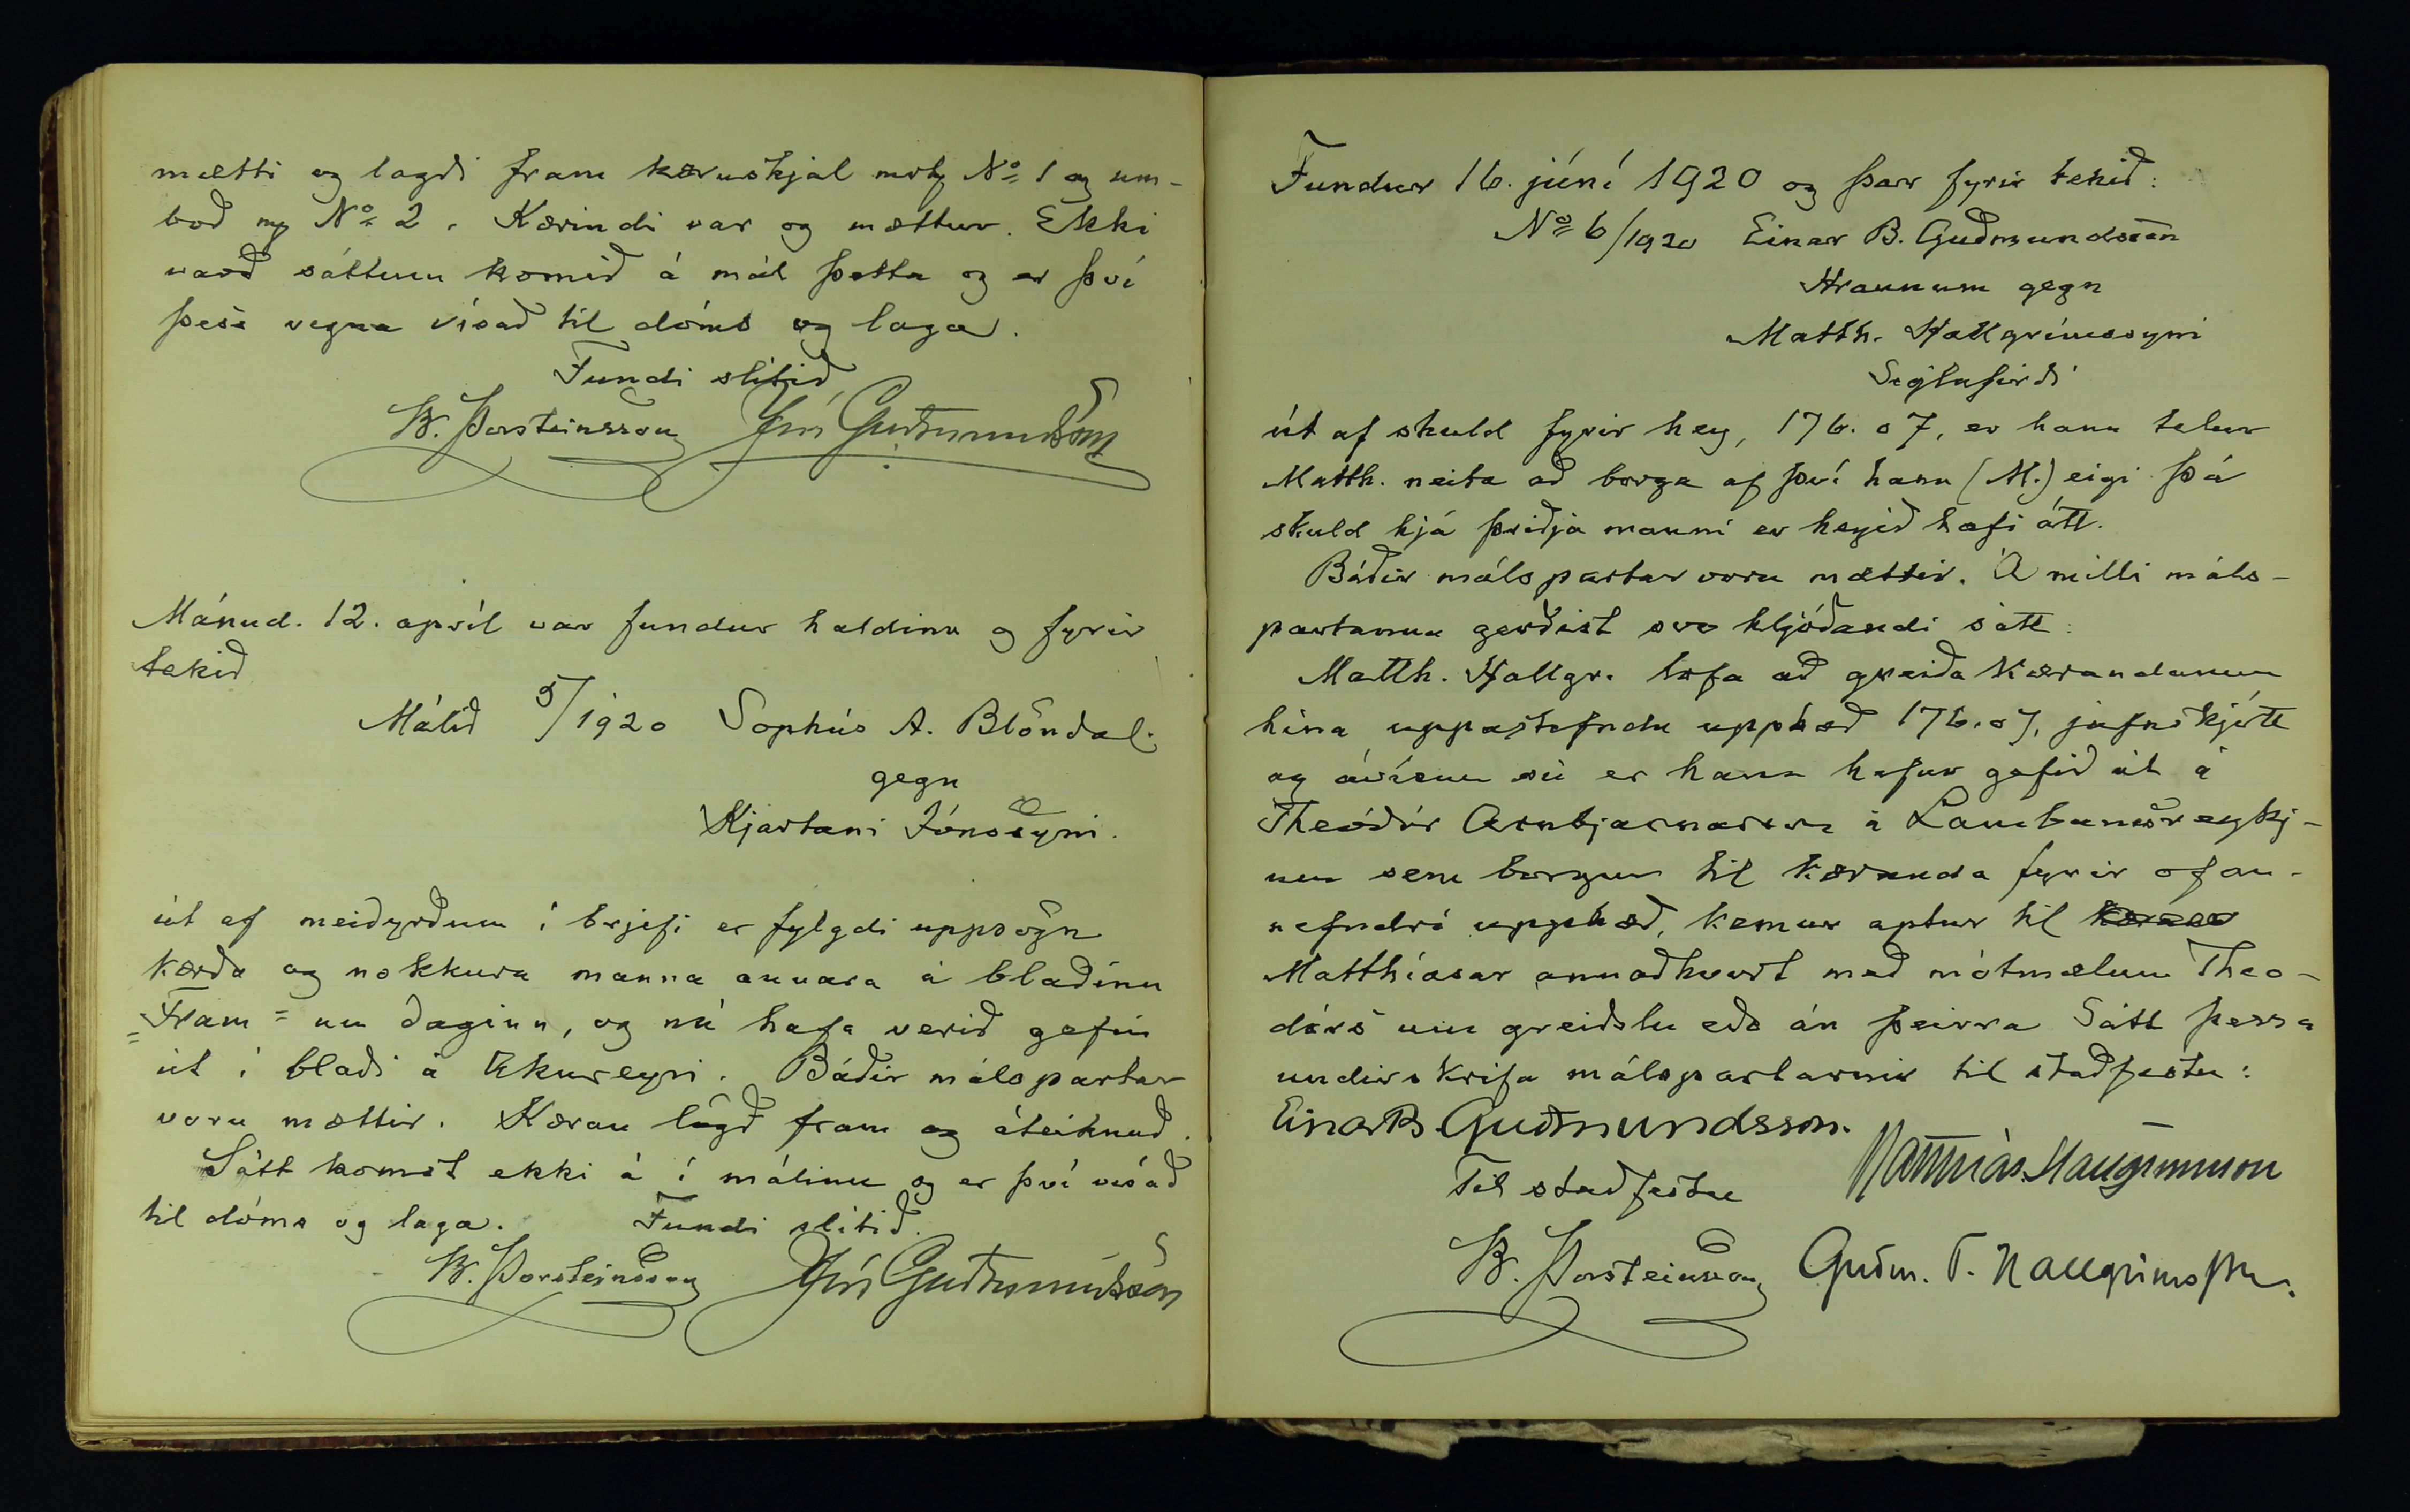 mætti og lagði fram kæruskjal mrk No 1 og um-
boð mrk No 2. Kærindi var og mættur. Ekki
varð sáttum komið á mál þetta og er því
þess vegna vísað til dóms og laga.
Fundi slitið
B. Þorsteinsson Jón Guðmundsson
Mánud. 12. apríl var fundur haldinn og fyrir
tekið
Málið 5/1920 Sophús A. Blöndal
gegn
Kjartani Jónssyni.
út af meiðyrðum í brjefi er fylgdi uppsögn
kærða og nokkura manna annara á blaðinu
"Fram" um daginn, og nú hafa verið gefin
út í blaði á Akureyri. Báðir málspartar
voru mættir. Kæran lögð fram og áteiknuð.
Sátt komst ekki á í málinu og er því vísað
til dóms og laga. Fundi slitið.
B. Þorsteinsson Jón Guðmundsson
Fundur 16. júní 1920 og þar fyrir tekið:
No 6/1920 Einar B. Guðmundsson
Hraunum gegn
Matth. Hallgrímssyni
Siglufirði
út af skuld fyrir hey, 176.07, er hann telur
Matth. neita að borga af því hann (M.) eigi þá
skuld hjá þriðja manni er heyið hafi átt.
Báðir málspartar voru mættir. Á milli máls-
partanna gerðist svo hljóðandi sátt:
Matth. Hallgr. lofa að greiða kærandanum
hina uppástefndu upphæð 176.07, jafnskjótt
og ávísun sú er hann hefur gefið út á
Theódór Arnbjarnarson á Lambanesreykj-
um sem borgun til kæranda fyrir ofan-
nefndri upphæð, kemur aptur til
Matthíasar annaðhvort með mótmælum Theo-
dórs um greiðslu eða án þeirra Sátt þessa
undirskrifa málspartarnir til staðfestu:
Einar B. Guðmundsson.
Matthías Hallgrímsson
Til staðfestu
B. Þorsteinsson Guðm. T. Hallgrímsson.